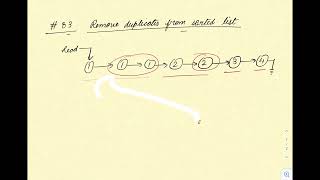 # 83 Remove duplicates from sorted list
head
1 1 1 2 2 3 4